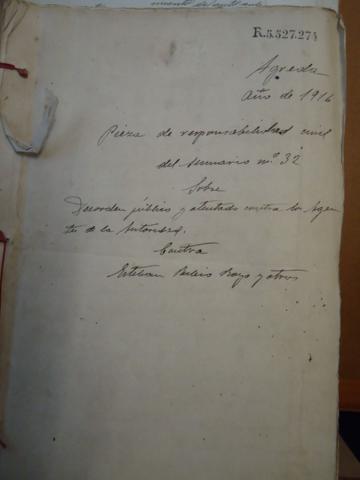 R.5.527.274
Agreda
Año de 1916
Pieza de responsabilidad civil
del sumario nº 32
Sobre
Desorden público y atentado contra los Agen-
tes de la Autoridad.
Contra
Esteban Rayo y otros